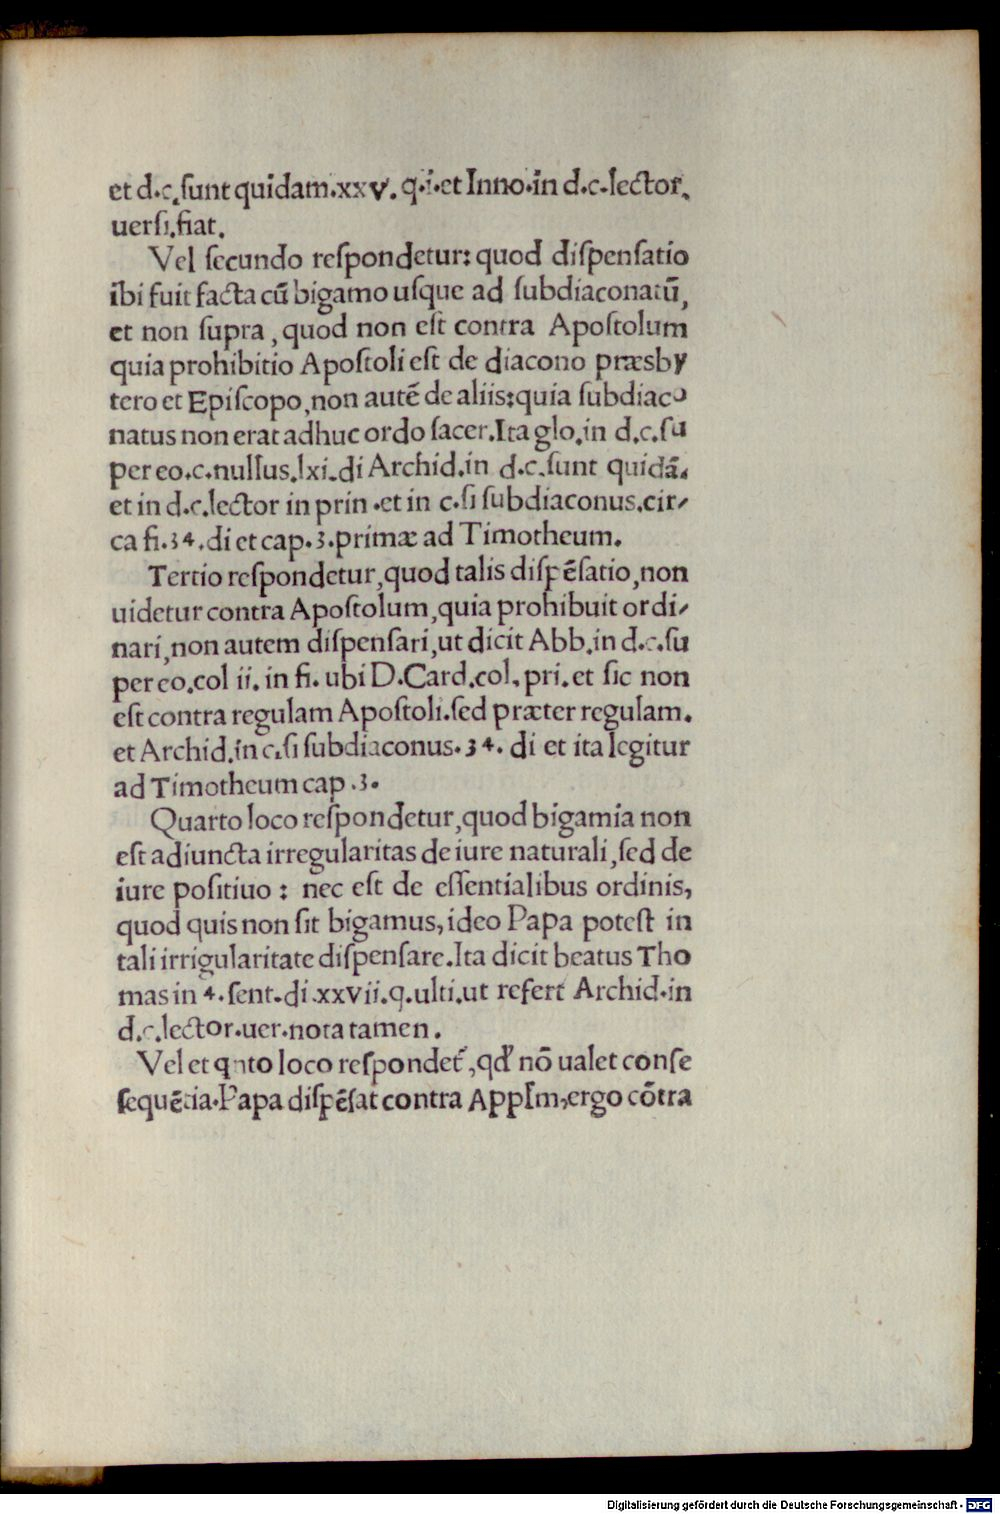 et d.c.ſunt quidam.xxv. q.i.et Inno.in d.c.lector.
uerſi.fiat.
Vel ſecundo reſpondetur: quod diſpenſatio
ibi fuit facta cū bigamo uſque ad ſubdiaconatū,
et non ſupra, quod non eſt contra Apoſtolum
quia prohibitio Apoſtoli eſt de diacono præsby
tero et Epiſcopo,non autē de aliis:quia ſubdiaco
natus non erat adhuc ordo ſacer.Ita glo.in d.c.ſu
per eo.c.nullus.lxi.di Archid.in d.c.ſunt quidā.
et in d.c.lector in prin.et in c.ſi ſubdiaconus.cir/
ca fi.34.di et cap.3.primæ ad Timotheum.
Tertio reſpondetur,quod talis diſpēſatio,non
uidetur contra Apoſtolum,quia prohibuit ordi/
nari,non autem diſpenſari,ut dicit Abb.in d.c.ſu
per eo.col ii. in fi. ubi D.Card.col. pri. et ſic non
eſt contra regulam Apoſtoli.ſed præter regulam.
et Archid.in c.ſi ſubdiaconus.34. di et ita legitur
ad Timotheum cap.3.
Quarto loco reſpondetur,quod bigamia non
eſt adiuncta irregularitas de iure naturali,ſed de
iure poſitiuo : nec eſt de eſſentialibus ordinis,
quod quis non ſit bigamus, ideo Papa poteſt in
tali irrigularitate diſpenſare.Ita dicit beatus Tho
mas in 4.ſent.di.xxvii.q.ulti.ut refert Archid.in
d.c.lector.uer.nota tamen.
Vel et qnto loco reſpondet᷑,qđ nō ualet conſe
ſequētia.Papa diſpēſat contra Appſm,ergo cōtra
Digitalisierung gefördert durch die Deutsche Forschungsgemeinschaft - DFG